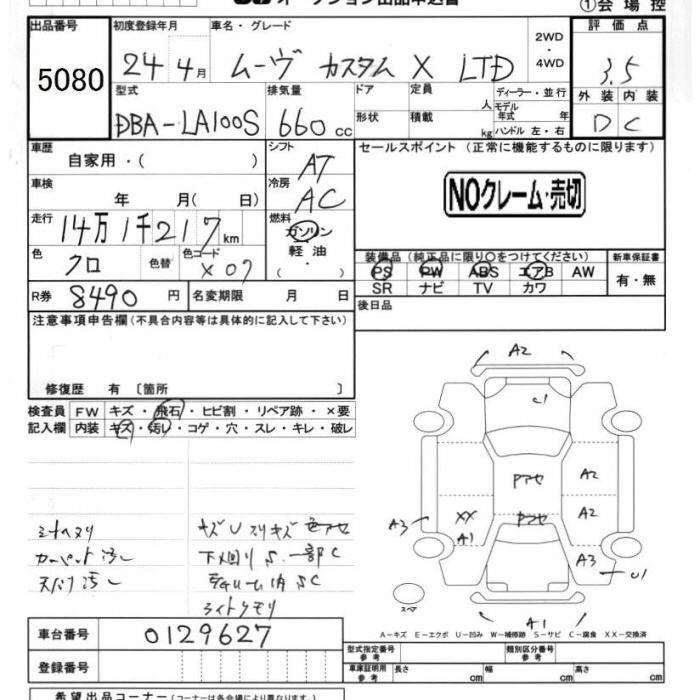 オークション出品申込書 ①会場控
出品番号 初度登録年月 車名・グレード 2WD ・ 4WD 評価点
5080 24年 4月 ムーヴ カスタム X LTD 3.5
型式 排気量 ドア 定員 人 ディーラー・並行 外装 内装
DBA-LA100S 660cc 形状 積載 kg モデル年式 年 ハンドル 左・右 D C
車歴 自家用・( ) シフト AT セールスポイント (正常に機能するものに限ります)
車検 年 月( 日) 冷房 AC NOクレーム・売切
走行 14万1千217km 燃料 ガソリン 軽油 ・
色 クロ 色替 色コード X07 装備品 (純正品に限り○をつけてください) 新車保証書
PS PW ABS エアB AW 有・無
SR ナビ TV カワ
R券 8490円 名変期限 月 日 後日品
注意事項申告欄 (不具合内容等は具体的に記入して下さい)
修復歴 有 〔箇所 〕
検査員 FW キズ・飛石・ヒビ割・リペア跡・×要
記入欄 内装 キズ・汚レ・コゲ・穴・スレ・キレ・破レ
A2
U1
アセ A2
A3 XX A1 A2
A3 U1
A1
スペア
カーペット汚レ 下廻りS.一部C
ライトクモリ
A-キズ E-エクボ U-凹み W-補修跡 S-サビ C-腐食 XX-交換済
車台番号 0129627
登録番号
型式指定番号 参考 類別区分番号 参考
車庫証明用 参考 長さ cm 幅 cm 高さ cm
希望出品コーナー